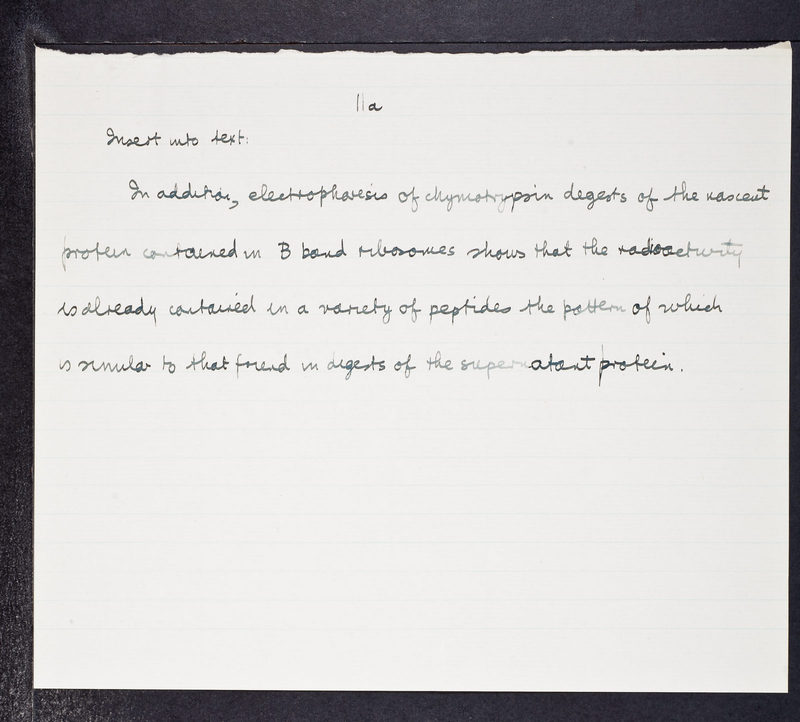 11a
Insert into text:
In addition, electrophoresis of chymotrypsin digests of the nascent
protein contained in B band ribosomes shows that the radioactivity
is already contained in a variety of peptides the pattern of which
is similar to that found in digests of the supernatant protein.